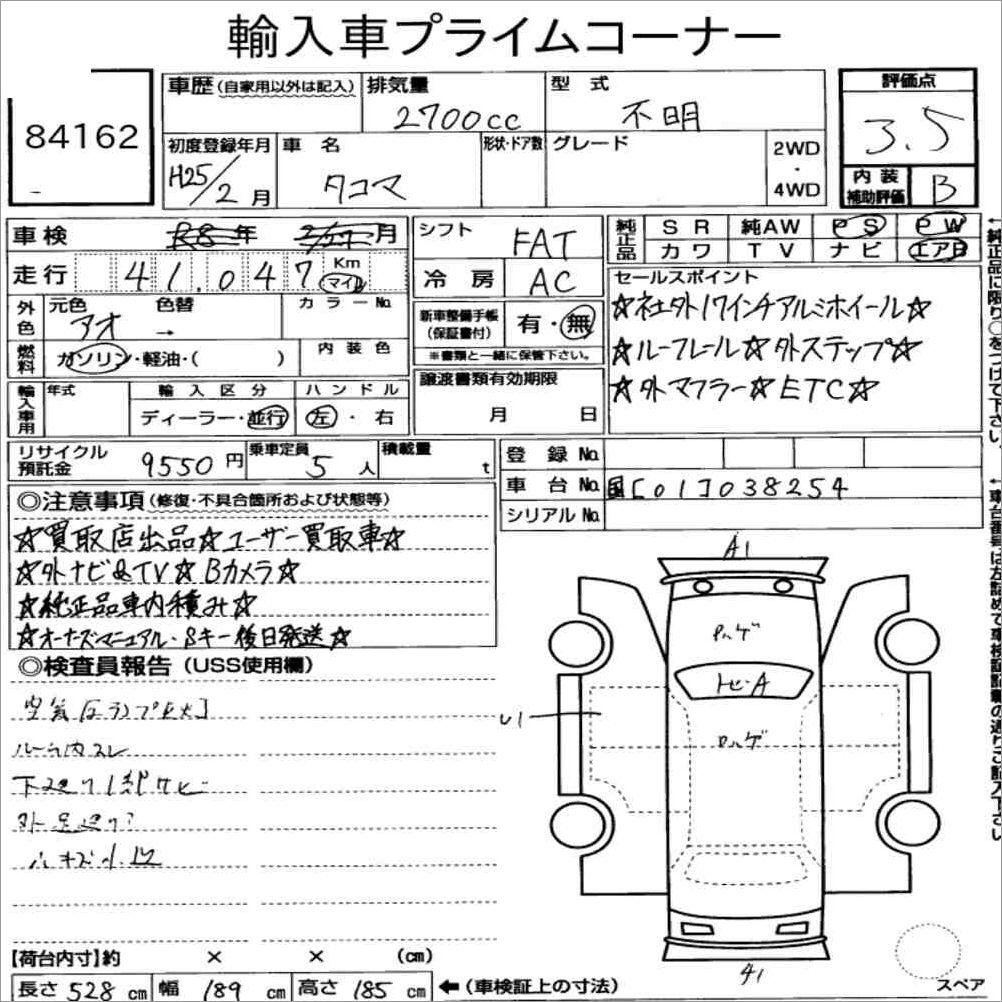 輸入車プライムコーナー
84162
車歴(自家用以外は記入)
排気量
2700cc
型式
不明
評価点
3.5
初度登録年月
H25/2月
車名
タコマ
形状・ドア数
グレード
2WD
・
4WD
内装
補助評価
B
車検
R8年
月
走行 41,047 Km
マイル
外色
元色
アオ
色替
→
カラーNo.
燃料
ガソリン・軽油・( )
内装色
輸入車用
年式
輸入区分
ディーラー・並行
ハンドル
左・右
シフト
FAT
冷房
AC
新車整備手帳
(保証書付)
有・無
※書類と一緒に保管下さい。
譲渡書類有効期限
月 日
純正品
SR 純AW PS PW
カワ TV ナビ エアB
セールスポイント
☆社外17インチアルミホイール☆
☆ルーフレール☆外ステップ☆
☆外マフラー☆ETC☆
←純正品に限り○をつけて下さい。
リサイクル
預託金
9550円
乗車定員
5人
積載量
t
登録No.
車台No. 国[01]038254
シリアルNo.
←車台番号は左詰めで車検証記載の通りご記入下さい
◎注意事項(修復・不具合箇所および状態等)
☆買取店出品☆ユーザー買取車☆
☆外ナビ&TV☆Bカメラ☆
☆純正品車内積み☆
☆オーナーズマニュアル・Sキー後日発送☆
◎検査員報告(USS使用欄)
ルーム内スレ
A1
トビ-A
【荷台内寸】約 × × (cm)
長さ 528 cm 幅 189 cm 高さ 185 cm ←(車検証上の寸法)
スペア